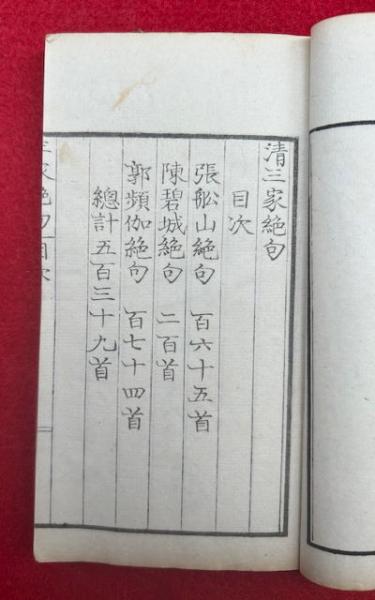 清三家絶句
目次
張船山絶句 百六十五首
陳碧城絶句 二百首
郭頻伽絶句 百七十四首
總計五百三十九首
三家絶句目次